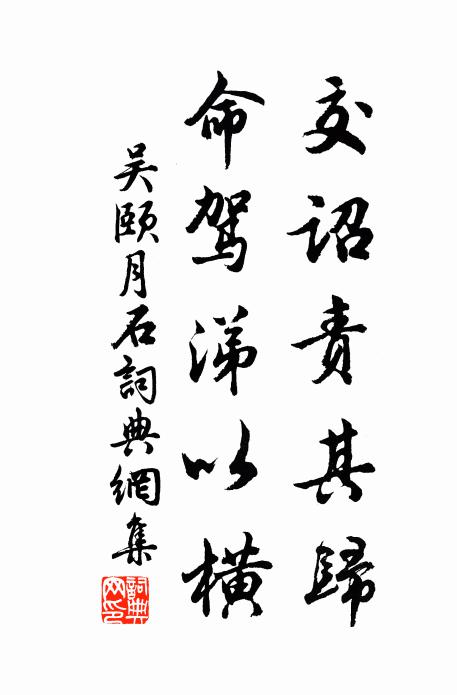 交詔責其歸
命駕涕以橫
吴頤月石詞典網集
詞典网印